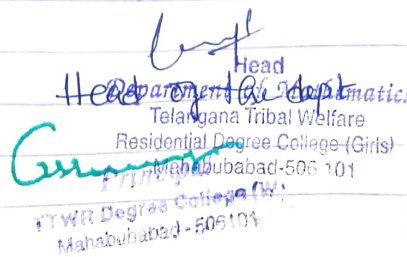 Head
Head of the dept
Department of Mathematics
Telangana Tribal Welfare
Residential Degree College (Girls)
Mahabubabad-506 101
Principal
TTWR Degree College (W)
Mahabubabad - 506101